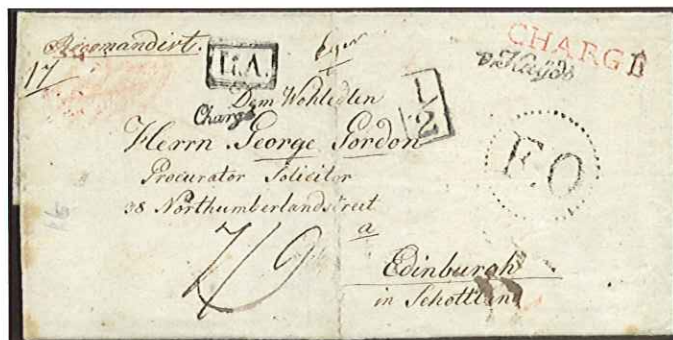 Recomandirt.
17
R.A.
Eger
CHARGÉ
v. Hayd
Chargé
1/2
Dem Wohledlen
Herrn George Gordon
Procurator Solicitor
38 Northumberlandstreet
F.O
a
7/9
Edinburgh
in Schottland